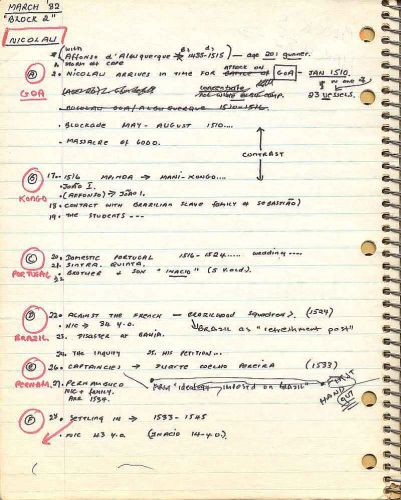 MARCH 82
"BLOCK 2"
NICOLAU
(with
Affonso d'Albuquerque b. 1435-1515) — age 20: gunner.
A 2. NICOLAU ARRIVES IN TIME FOR ATTACK ON GOA - JAN 1510.
GOA
23 VESSELS.
NICOLAU GOA/ALBUQUERQUE 1510-1516
• BLOCKADE MAY - AUGUST 1510....
• MASSACRE OF 6000.
CONTRAST
B 17. 1516 MANDA → MANI-KONGO....
KONGO
• JOÃO I.
• (AFFONSO) → JOÃO I.
18. CONTACT WITH BRAZILIAN SLAVE FAMILY OF SEBASTIÃO)
19. THE STUDENTS ---
C 20. DOMESTIC PORTUGAL 1516-1524..... wedding ....
PORTUGAL
21. SINTRA. QUINTA.
22. BROTHER + SON "INACIO" (5 Y.OLD).
D 22. AGAINST THE FRENCH — BRAZILWOOD SQUADRONS. (1527)
BRAZIL
• NIC → 34 Y.O.
→ BRAZIL AS "refreshment post"
23. DISASTER OF BAHIA.
24. THE INQUIRY 25. HIS PETITION...
E 26. CAPTAINCIES → DUARTE COELHO PEREIRA (1533)
PERNAM.
27. PERNAMBUCO
NIC + family.
ARR 1534.
"identity" interest on BRAZIL"
PLANT
HAND
OUT
F 28. SETTLING IN → 1533 - 1545
• NIC 43 Y.O. (INACIO 14-Y.O.)